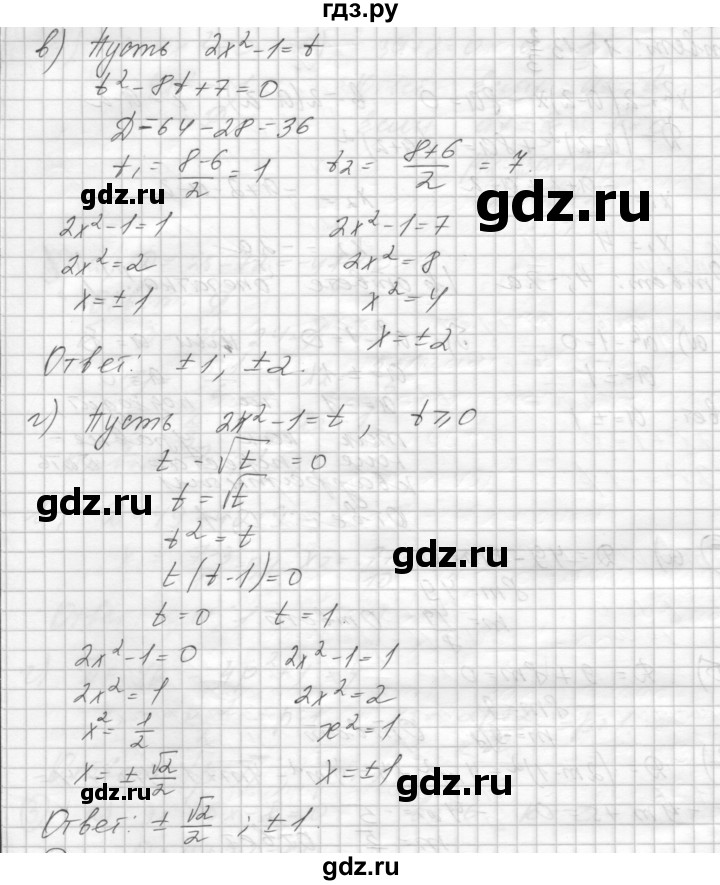 гдз.ру
в) Пусть 2x²-1=t
t²-8t+7=0
D=64-28=36
t₁= (8-6)/2 =1 t₂= (8+6)/2 = 7.
gdz.ru
gdz.ru
2x²-1=1 2x²-1=7
2x²=2 2x²=8
x=±1 x²=4
x=±2.
Ответ: ±1; ±2.
г) Пусть 2x²-1=t, t⩾0
t-√t =0
gdz.ru
t=√t
t²=t
gdz.ru
t(t-1)=0
t=0 t=1.
2x²-1=0 2x²-1=1
2x²=1 2x²=2
x²= 1/2 x²=1
x=± √2/2 x=±1
gdz.ru
gdz.ru
Ответ: ± √2/2 ; ±1.
gdz.ru